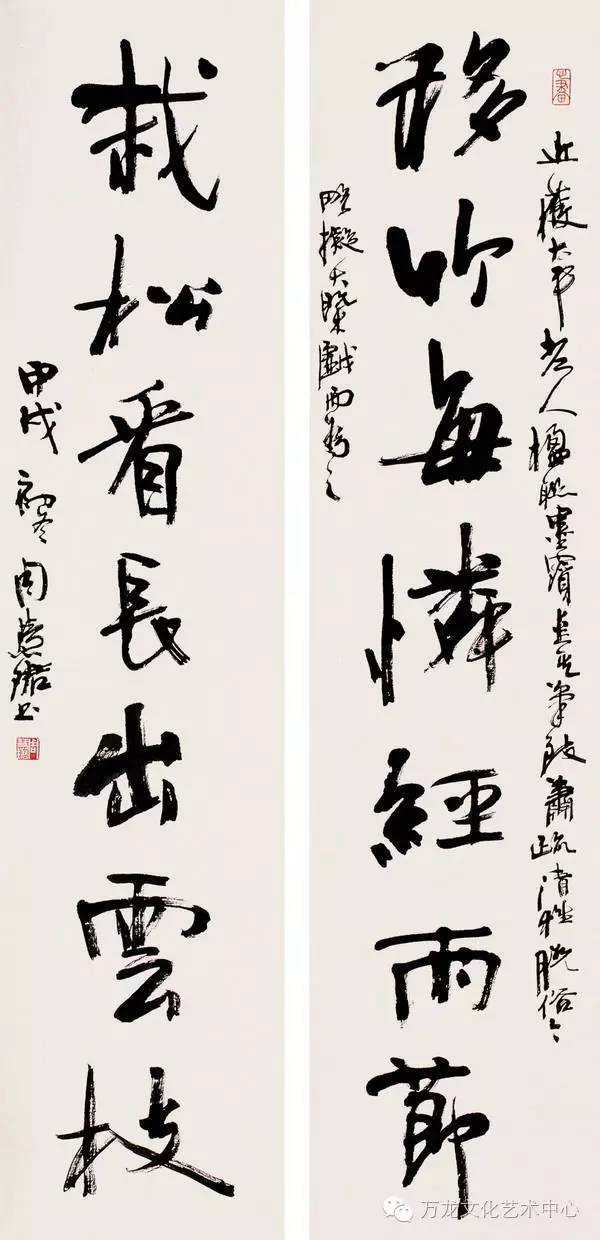 近獲大老人楹聯墨寶其筆致蕭疏清雅脫俗今
移竹每憐經雨節
略擬大槩戲而為之
栽松看長出雲枝
甲戌初冬周慧珺書
万龙文化艺术中心